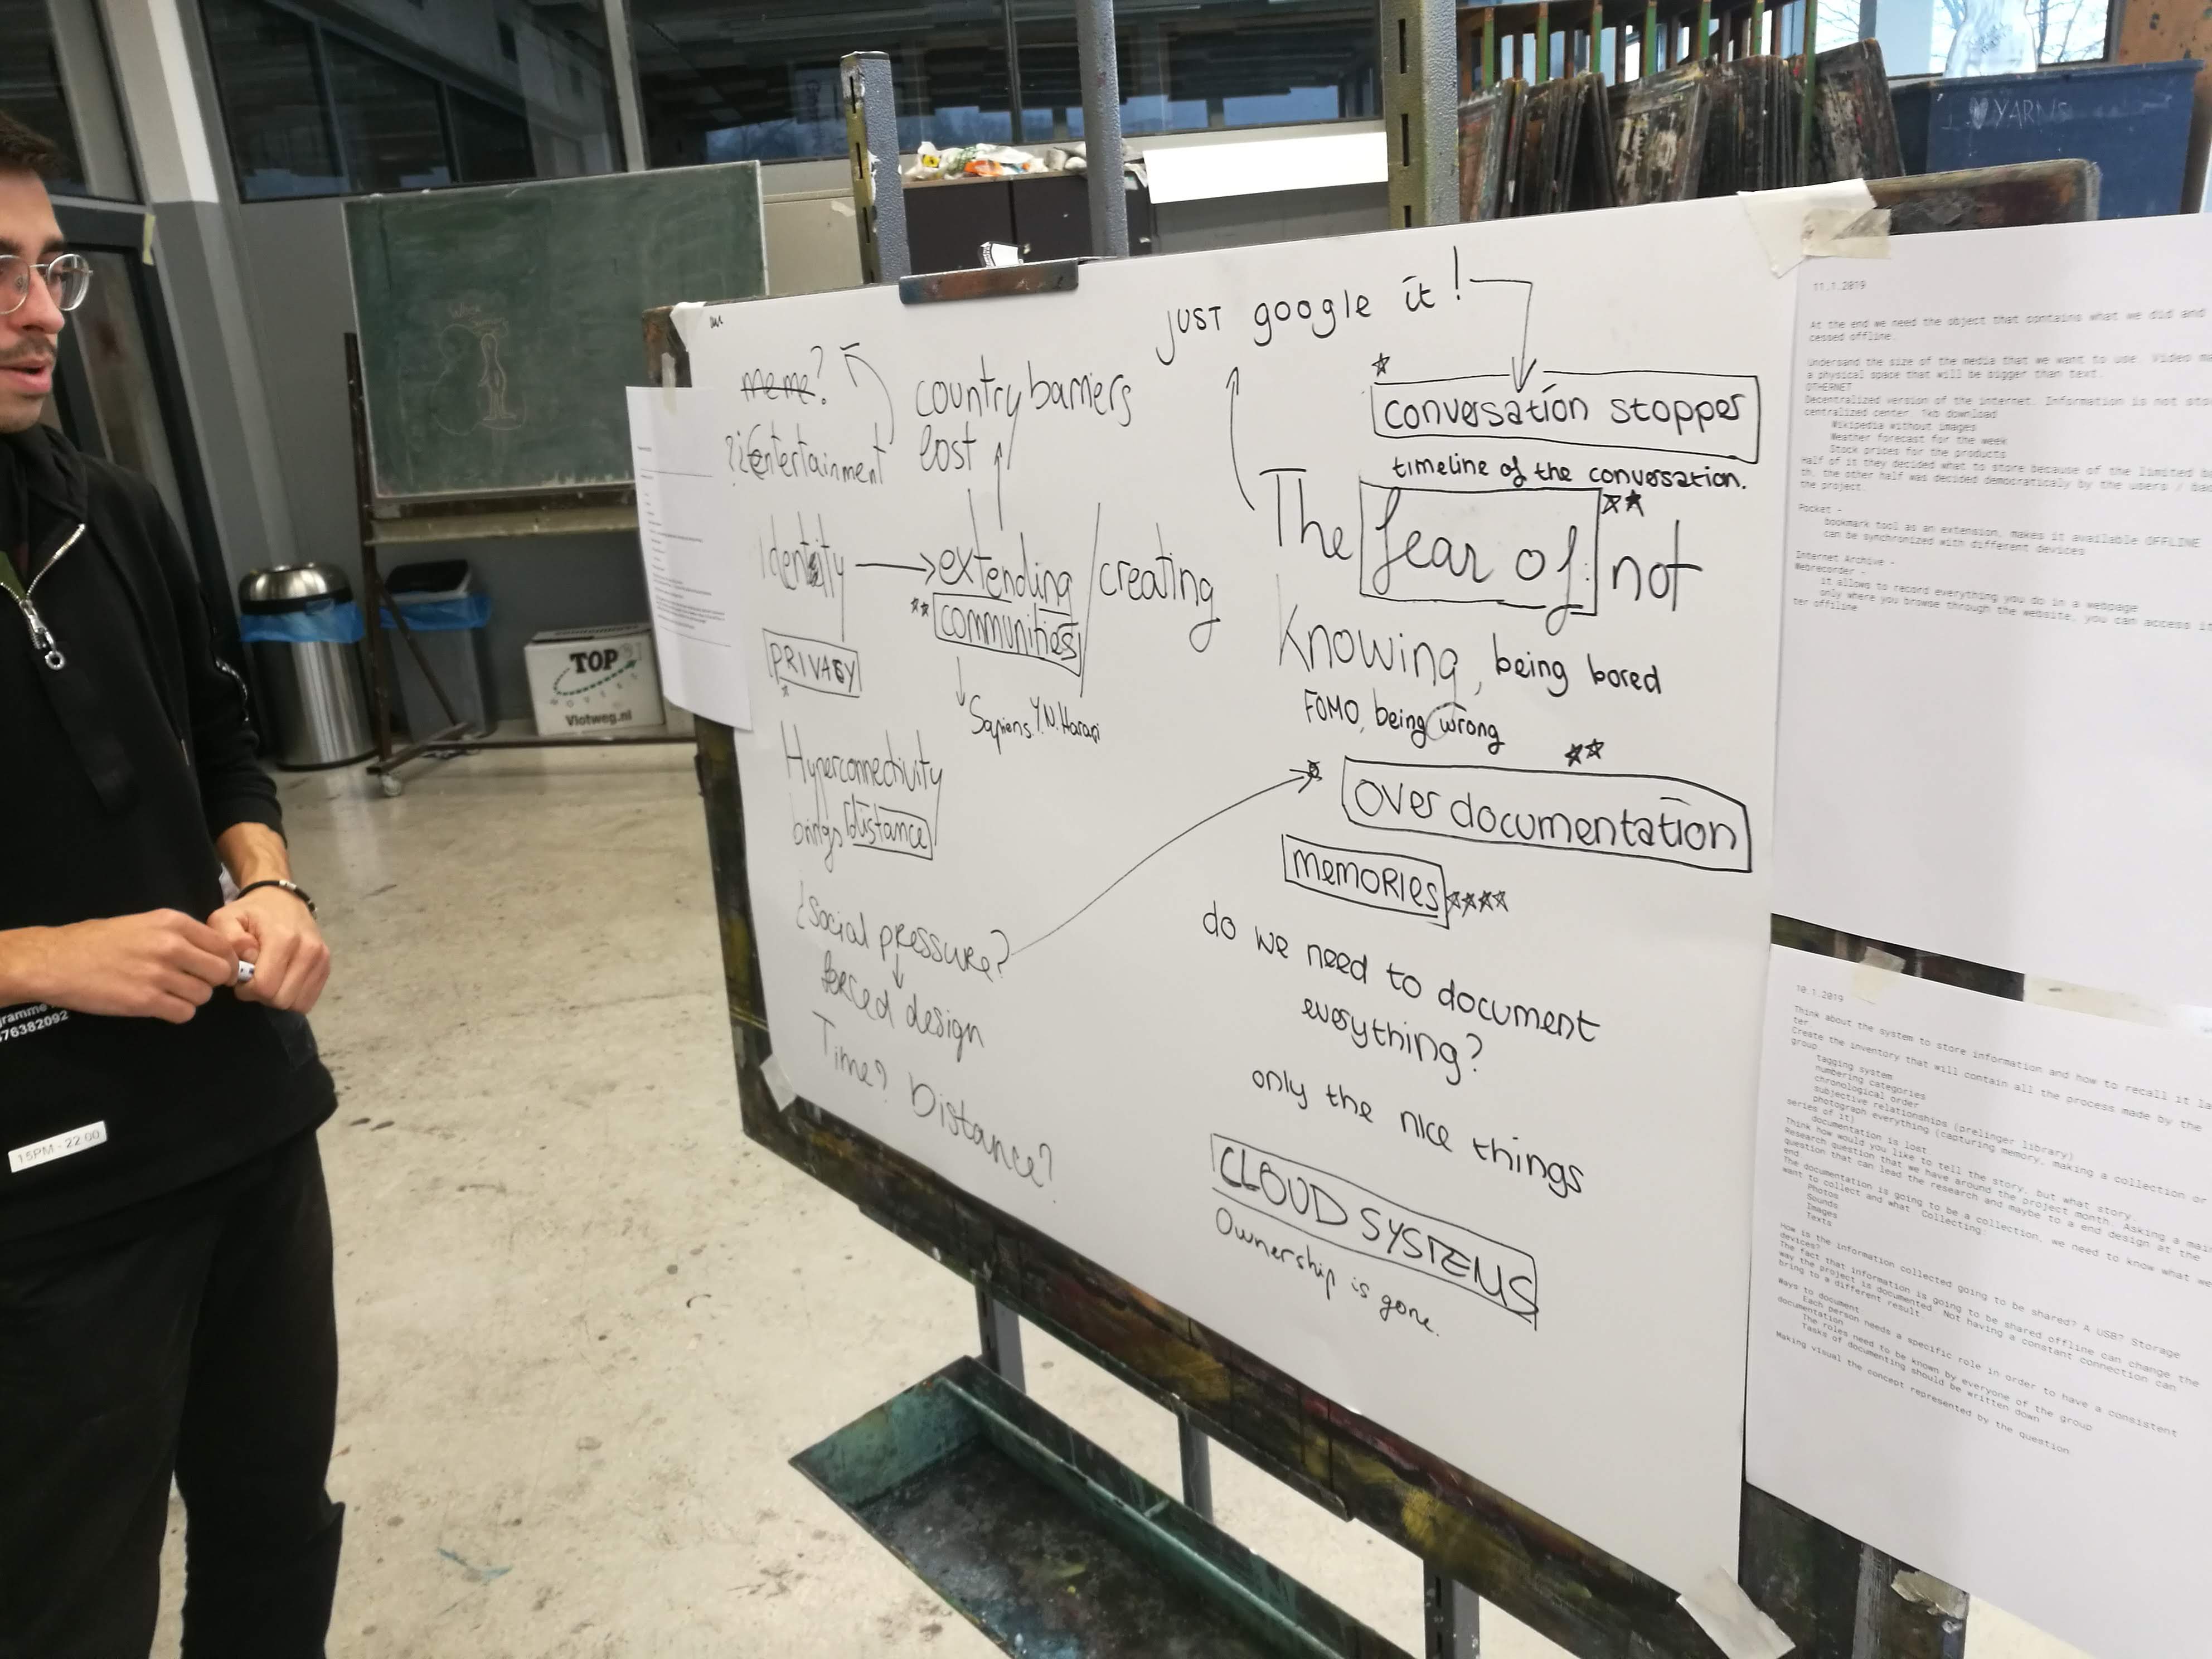 just google it!
meme?
country barriers
lost
conversation stopper
timeline of the conversation.
The fear of: not
Identity
extending / creating
communities
Knowing, being bored
PRIVACY
Sapiens Y.N. Harari
FOMO, being wrong
Hyperconnectivity
brings distance
over documentation
MEMORIES
¿Social pressure?
forced design
do we need to document
everything?
Time? Distance?
only the nice things
CLOUD SYSTEMS
Ownership is gone.
TOP
MOVERS
Vlotweg.nl
YARNS
gramme
76382092
15PM - 22.00
11.1.2019
At the end we need the object that contains what we did and
cessed offline.
Undersand the size of the media that we want to use. Video
a physical space that will be bigger than text.
OTHERNET
Decentralized version of the internet. Information is not
centralized center. 1kb download
Wikipedia without images
Weather forecast for the week
Stock prices for the products
Half of it they decided what to store because of the limited
th, the other half was decided democraticaly by the users /
the project.
Pocket -
bookmark tool as an extension, makes it available OFFLINE
can be synchronized with different devices
Internet Archive -
Webrecorder -
it allows to record everything you do in a webpage
only where you browse through the website, you can access
ter offline
10.1.2019
Think about the system to store information and how to recall it la
ter
Create the inventory that will contain all the process made by the
group
tagging system
numbering categories
chronological order
subjective relationships (prelinger library)
photograph everything (capturing memory, making a collection or
series of it)
documentation is lost
Think how would you like to tell the story, but what story.
Research question that we have around the project month. Asking a
question that can lead the research and maybe to a end design at the
end
The documentation is going to be a collection, we need to know what we
want to collect and what. Collecting:
Photos
Sounds
Images
Texts
How is the information collected going to be shared? A USB? Storage
devices?
The fact that information is going to be shared offline can change the
way the project is documented. Not having a constant connection can
bring to a different result.
Ways to document
Each person needs a specific role in order to have a consistent
documentation
The roles need to be known by everyone of the group
Tasks of documenting should be written down
Making visual the concept represented by the question